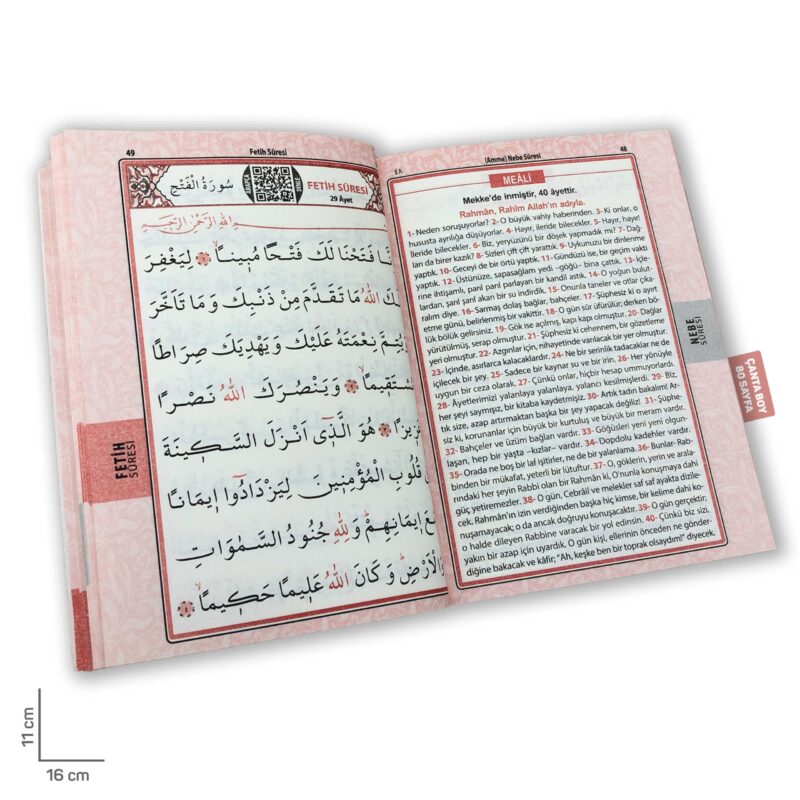 49
Fetih Sûresi
سُورَةُ الْفَتْحِ
FETİH SÛRESİ
29 Âyet
بِسْمِ اللّٰهِ الرَّحْمٰنِ الرَّحٖيمِ
فَتَحْنَا لَكَ فَتْحًا مُبٖينًا ۙ ١ لِيَغْفِرَ
اللّٰهُ مَا تَقَدَّمَ مِنْ ذَنْبِكَ وَمَا تَاَخَّرَ
وَيُتِمَّ نِعْمَتَهُ عَلَيْكَ وَيَهْدِيَكَ صِرَاطًا
مُسْتَقٖيمًا ۙ ٢ وَيَنْصُرَكَ اللّٰهُ نَصْرًا
عَزٖيزًا ٣ هُوَ الَّذٖٓي اَنْزَلَ السَّكٖينَةَ
قُلُوبِ الْمُؤْمِنٖينَ لِيَزْدَادُٓوا اٖيمَانًا
مَعَ اٖيمَانِهِمْ ۜ وَلِلّٰهِ جُنُودُ السَّمٰوَاتِ
وَالْاَرْضِ ۜ وَكَانَ اللّٰهُ عَلٖيمًا حَكٖيمًا ۙ ٤
FETİH
SÛRESİ
(Amme) Nebe Sûresi
48
٤٨
MEÂLİ
Mekke'de inmiştir, 40 âyettir.
Rahmân, Rahîm Allah'ın adıyla.
1- Neden soruşuyorlar? 2- O büyük vahiy haberinden. 3- Ki onlar, o
hususta ayrılığa düşüyorlar. 4- Hayır, ileride bilecekler. 5- Hayır, hayır!
İleride bilecekler. 6- Biz, yeryüzünü bir döşek yapmadık mı? 7- Dağ-
ları da birer kazık? 8- Sizleri çift çift yarattık. 9- Uykunuzu bir dinlenme
yaptık. 10- Geceyi de bir örtü yaptık. 11- Gündüzü ise, bir geçim vakti
yaptık. 12- Üstünüze, sapasağlam yedi –göğü– bina çattık. 13- İçle-
rine ihtişamlı, parıl parıl parlayan bir kandil astık. 14- O yoğun bulut-
lardan, şarıl şarıl akan bir su indirdik. 15- Onunla taneler ve otlar çıka-
ralım diye. 16- Sarmaş dolaş bağlar, bahçeler. 17- Şüphesiz ki o ayırt
etme günü, belirlenmiş bir vakittir. 18- O gün sûr üfürülür; derken bö-
lük bölük gelirsiniz. 19- Gök ise açılmış, kapı kapı olmuştur. 20- Dağlar
yürütülmüş, serap olmuştur. 21- Şüphesiz ki cehennem, bir gözetleme
yeri olmuştur. 22- Azgınlar için, nihayetinde varılacak bir yer olmuştur.
23- İçinde, asırlarca kalacaklardır. 24- Ne bir serinlik tadacaklar ne de
içilecek bir şey. 25- Sadece bir kaynar su ve bir irin. 26- Her yönüyle
uygun bir ceza olarak. 27- Çünkü onlar, hiçbir hesap ummuyorlardı.
28- Âyetlerimizi yalanlaya yalanlaya, yalancı kesilmişlerdi. 29- Biz,
her şeyi saymışız, bir kitaba kaydetmişiz. 30- Artık tadın bakalım! Ar-
tık size, azap artırmaktan başka bir şey yapacak değiliz! 31- Şüphe-
siz ki, korunanlar için büyük bir kurtuluş ve büyük bir meram vardır.
32- Bahçeler ve üzüm bağları vardır. 33- Göğüsleri yeni yeni yuvar-
laşan, hep bir yaşta –kızlar– vardır. 34- Dopdolu kadehler vardır.
35- Orada ne boş bir laf işitirler, ne de bir yalanlama. 36- Bunlar, Rab-
binden bir mükafat, yeterli bir lütuftur. 37- O, göklerin, yerin ve arala-
rındaki her şeyin Rabbi olan bir Rahmân ki, O'nunla konuşmaya dahi
güç yetiremezler. 38- O gün, Cebrâîl ve melekler saf saf ayakta dizile-
cek, Rahmân'ın izin verdiğinden başka hiç kimse, bir kelime dahi ko-
nuşamayacak; o da ancak doğruyu konuşacaktır. 39- O gün gerçektir;
o halde dileyen Rabbine varacak bir yol edinsin. 40- Çünkü biz sizi,
yakın bir azap için uyardık. O gün kişi, ellerinin önceden ne gönder-
diğine bakacak ve kâfir; "Ah, keşke ben bir toprak olsaydım!" diyecek.
NEBE
SÛRESİ
ÇANTA BOY
80 SAYFA
11 cm
16 cm